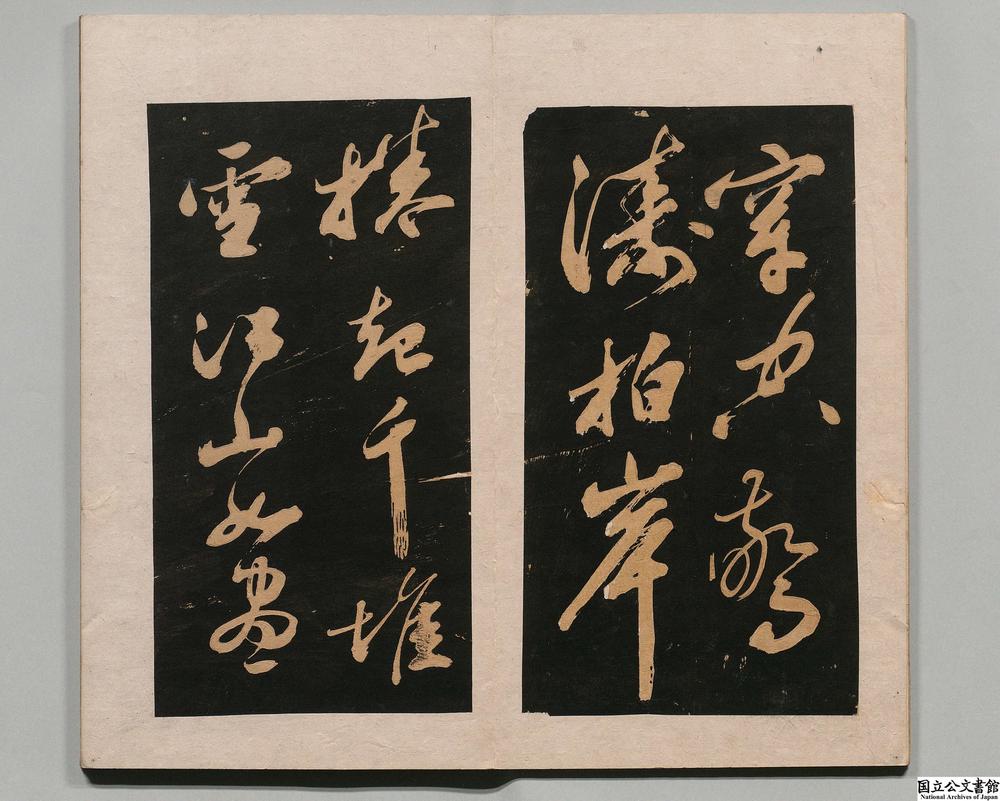 穿空驚
濤拍岸
捲起千堆
雪江山如畫
国立公文書館
National Archives of Japan